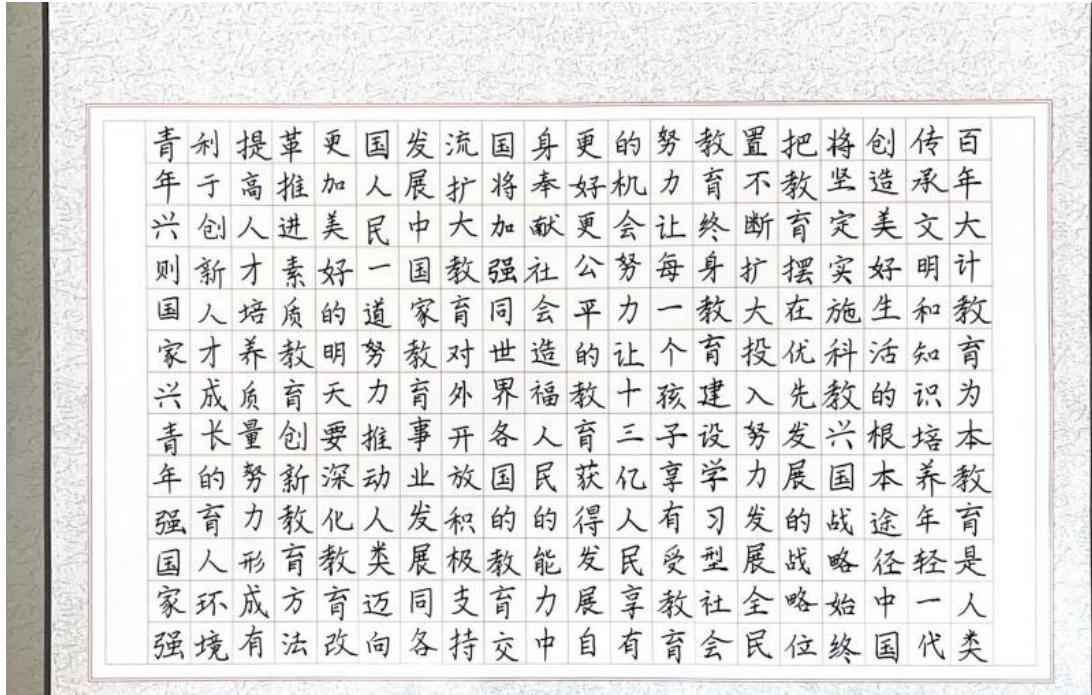 百年大计教育为本教育是人类
传承文明和知识培养年轻一代
创造美好生活的根本途径中国
将坚定实施科教兴国战略始终
把教育摆在优先发展的战略位
置不断扩大投入努力发展全民
教育终身教育建设学习型社会
努力让每一个孩子享有受教育
的机会努力让十三亿人民享有
更好更公平的教育获得发展自
身奉献社会造福人民的能力中
国将加强同世界各国的教育交
流扩大教育对外开放积极支持
发展中国家教育事业发展同各
国人民一道努力推动人类迈向
更加美好的明天要深化教育改
革推进素质教育创新教育方法
提高人才培养质量努力形成有
利于创新人才成长的育人环境
青年兴则国家兴青年强国家强